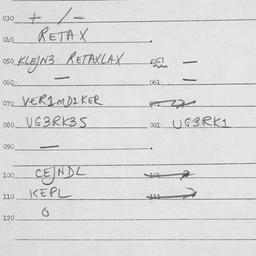 030 + /-
040 RETAX
050 KLEJN3 RETAXLAX —
060 — 061 —
070 VER1MD1KER
080 UG3RK35 081 UG3RK1
090 —
100 CEJNDL 101
110 KEPL 111
120 0